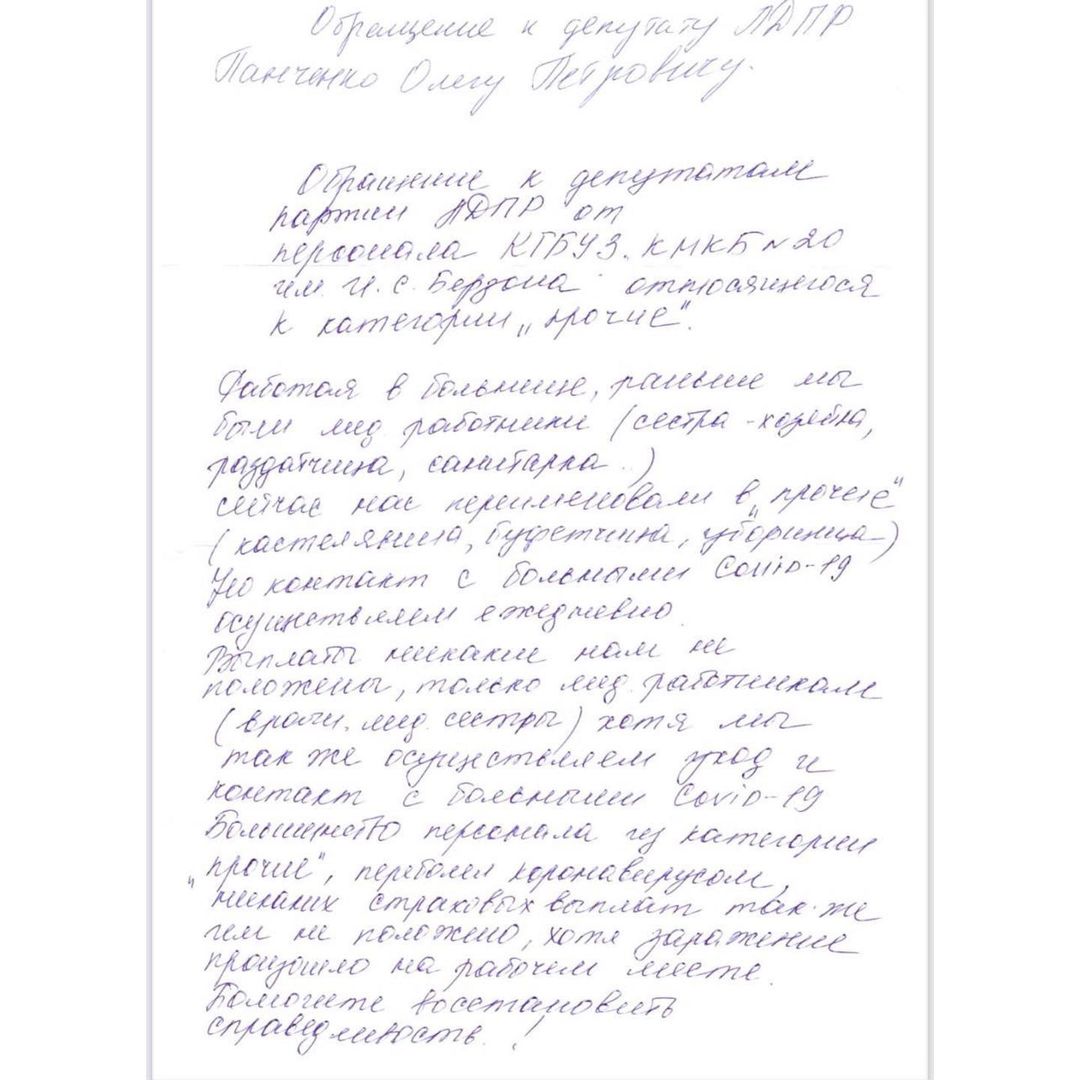 Обращение к депутату ЛДПР
Панченко Олегу Петровичу.
Обращение к депутатам
партии ЛДПР от
персонала КГБУЗ. КМКБ №20
им. И. С. Берзона относящегося
к категории „прочие".
Работая в больнице, раньше мы
были мед. работники (сестра-хозяйка,
раздатчица, санитарка..)
сейчас нас переименовали в „прочее"
(кастелянша, буфетчица, уборщица)
Но контакт с больными Covid-19
осуществляем ежедневно.
Выплаты никакие нам не
положены, только мед. работникам
(врачи, мед. сестры) хотя мы
так же осуществляем уход и
контакт с больными Covid-19
Большинство персонала из категории
„прочие", переболел коронавирусом,
никаких страховых выплат так-же
им не положено, хотя заражение
произошло на рабочем месте.
Помогите восстановить
справедливость.!